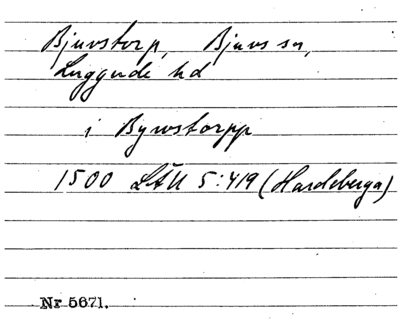 Bjuvstorp, Bjuvs sn,
Luggude hd
i Bywstorpp
1500 LÄU 5:419 (Hardeberga)
Nr 5671.